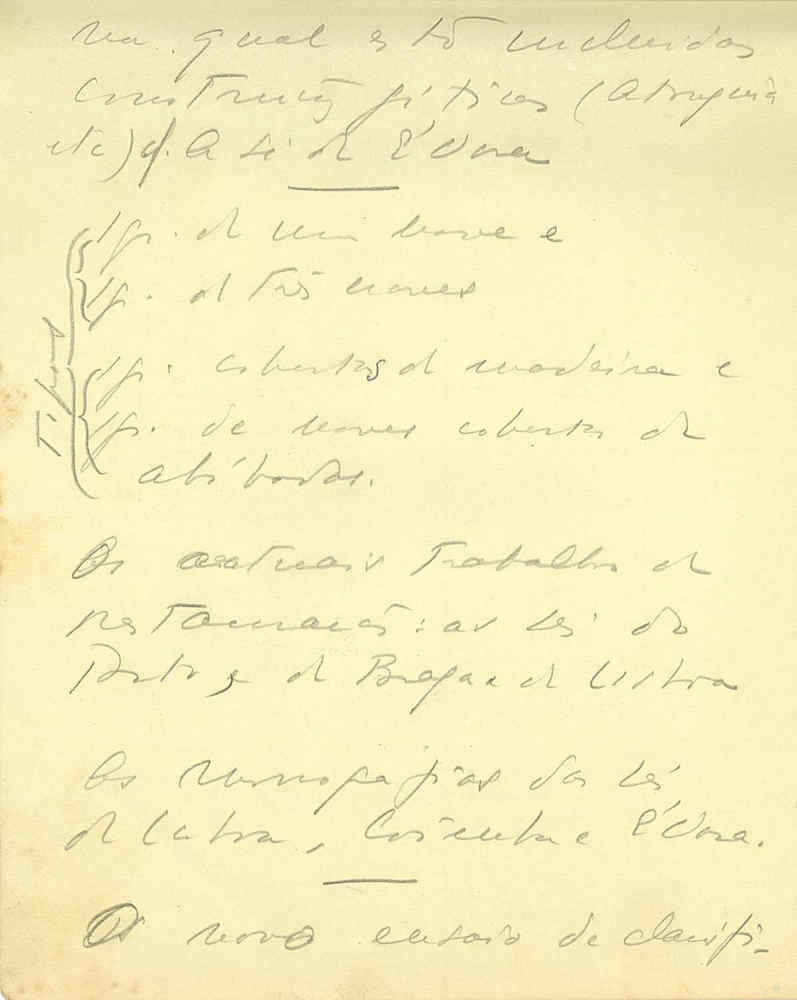 na qual estão incluidas
construções góticas (Atouguia
etc) cf. A sé de Évora
Ig. de uma nave e
Ig. de três naves
Tipos
Ig. cobertas de madeira e
Ig. de naves cobertas de
abóbodas.
Os actuais trabalhos de
restauração: as sés do
Porto, de Braga e de Lisboa
As monografias das sés
de Lisboa, Coimbra e Évora.
O novo ensaio de classifi-